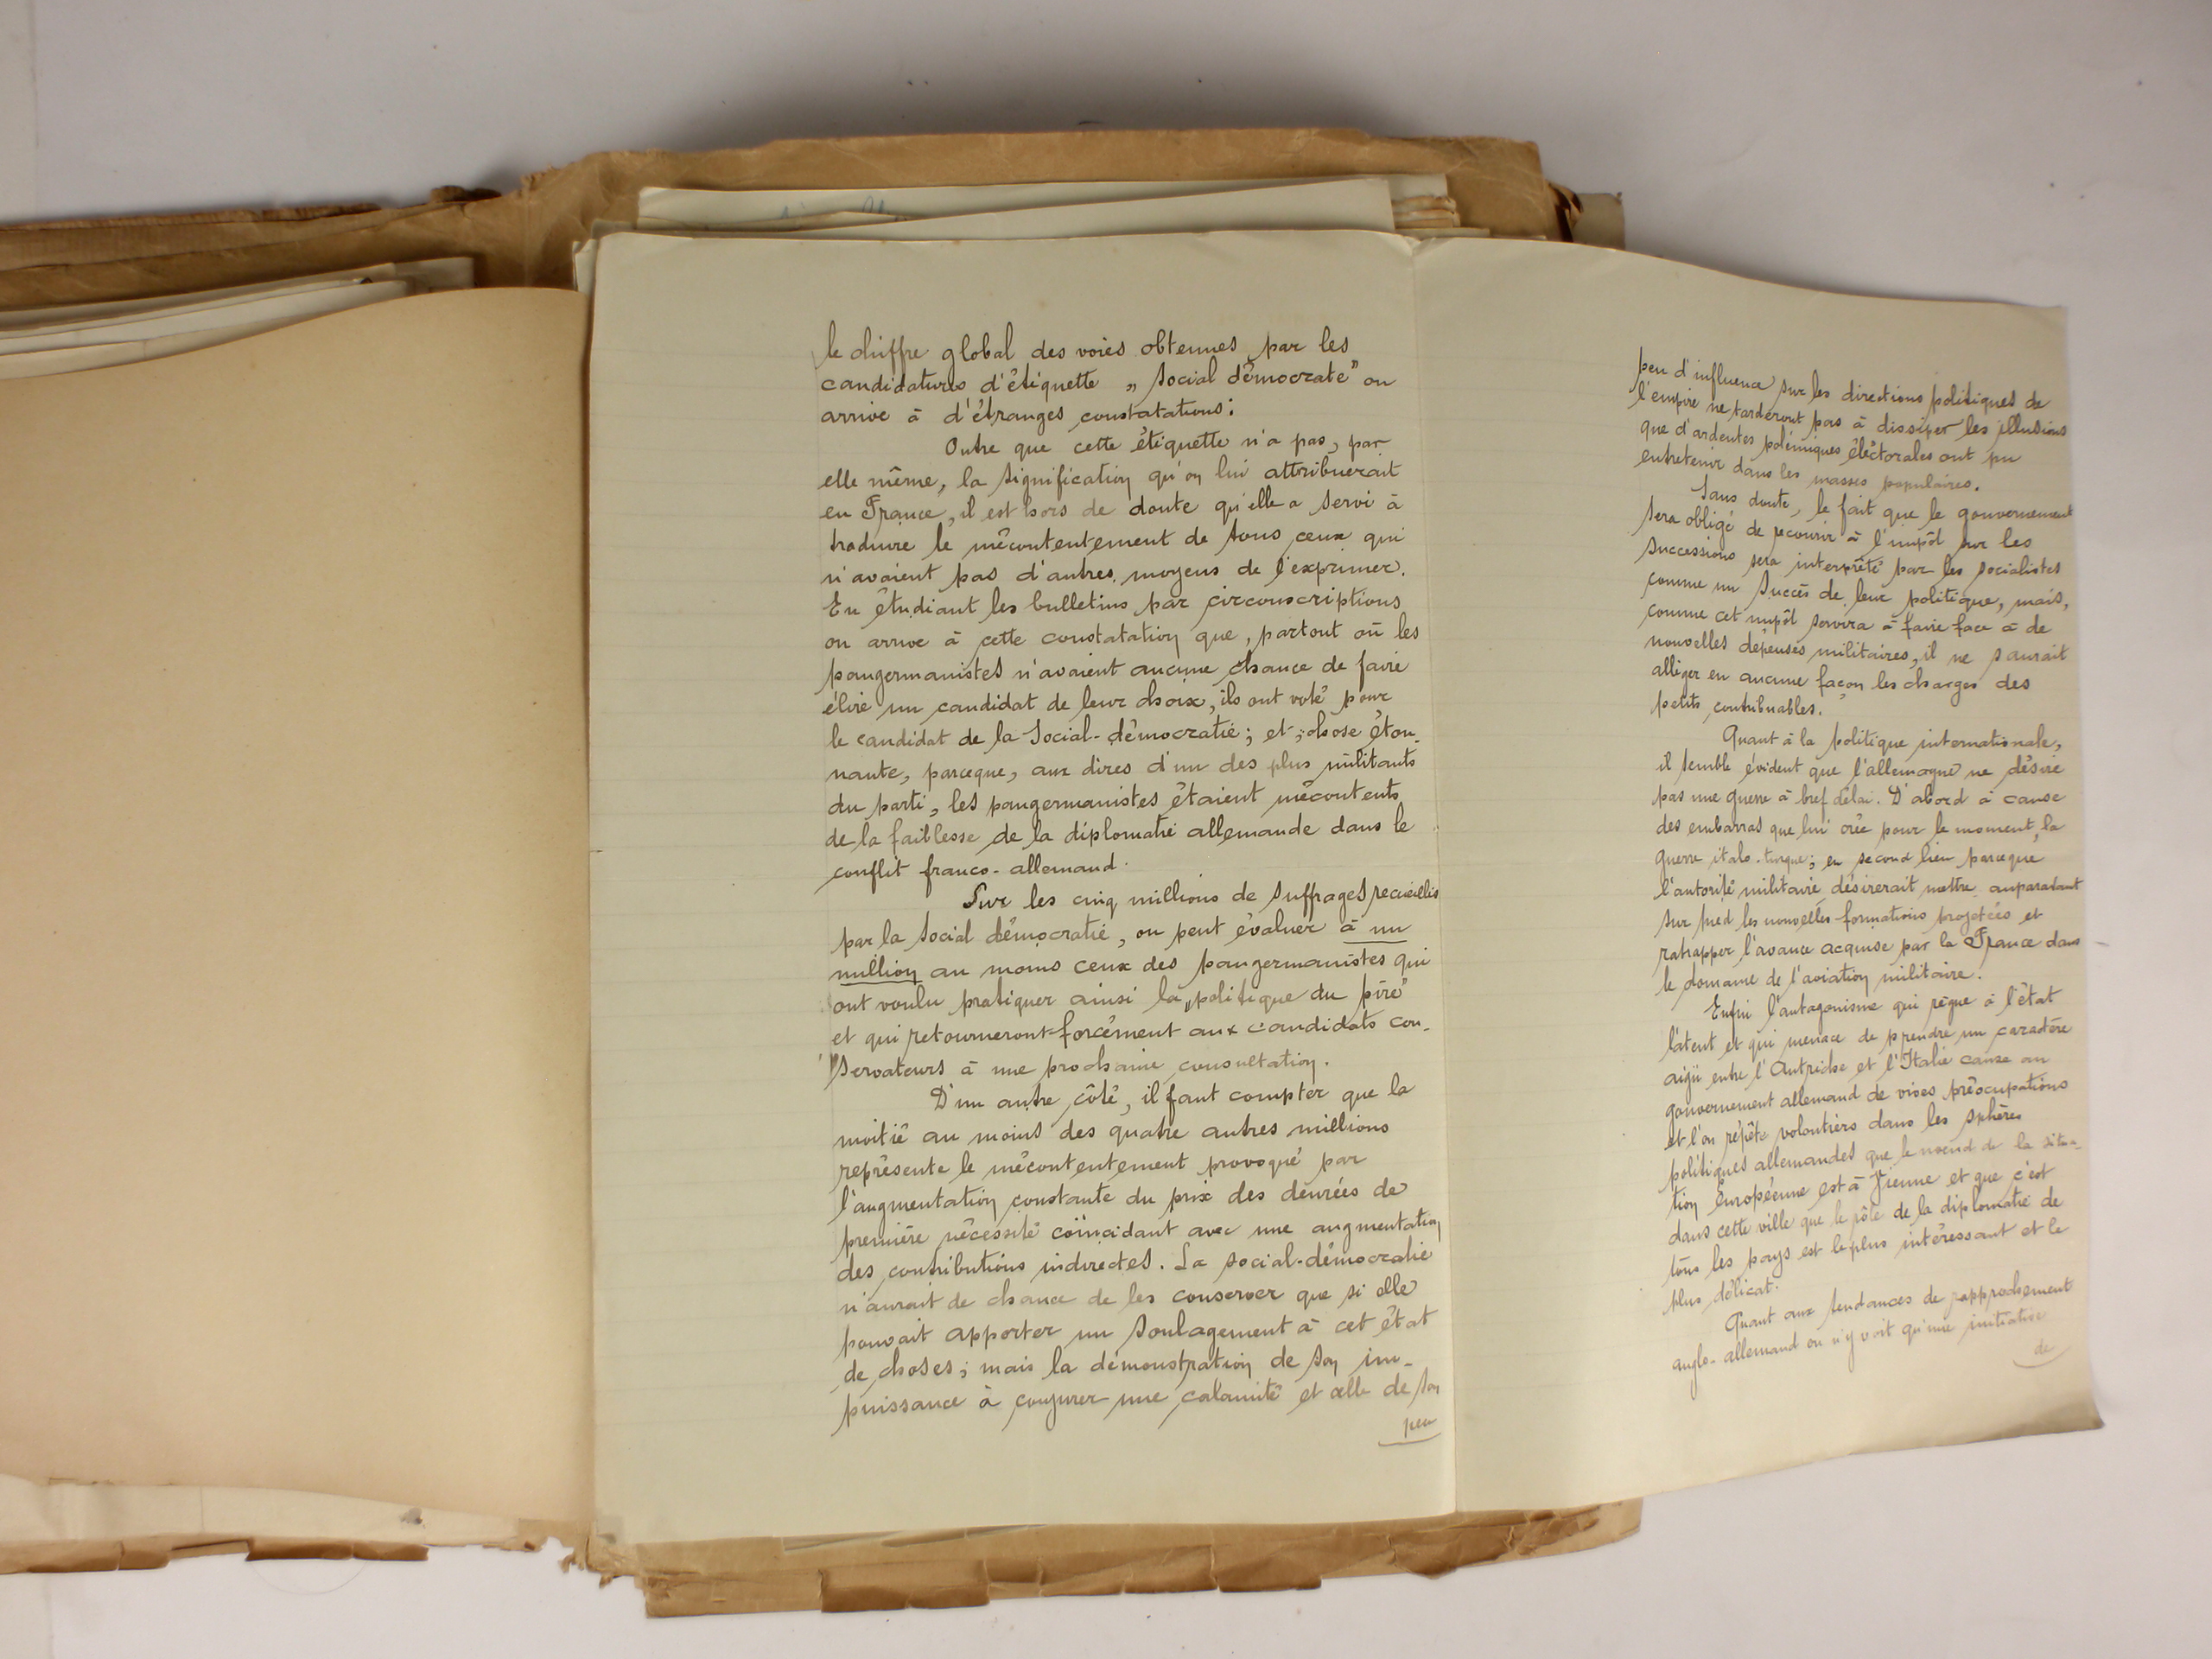 le chiffre global des voies obtenues par les
candidatures d'étiquette „ Social démocrate" on
arrive à d'étranges constatations:
Outre que cette étiquette n'a pas, par
elle même, la signification qu'on lui attribuerait
en France, il est hors de doute qu'elle a servi à
traduire le mécontentement de tous ceux qui
n'avaient pas d'autres moyens de l'exprimer.
En étudiant les bulletins par circonscriptions
on arrive à cette constatation que, partout où les
pangermanistes n'avaient aucune chance de faire
élire un candidat de leur choix, ils ont voté pour
le candidat de la Social-démocratie; et, chose éton-
nante, parceque, aux dires d'un des plus militants
du parti, les pangermanistes étaient mécontents
de la faiblesse de la diplomatie allemande dans le
conflit franco-allemand.
Sur les cinq millions de suffrages recueillis
par la Social démocratie, on peut évaluer à un
million au moins ceux des pangermanistes qui
ont voulu pratiquer ainsi la „politique du pire"
et qui retourneront forcément aux candidats con-
servateurs à une prochaine consultation.
D'un autre côté, il faut compter que la
moitié au moins des quatre autres millions
représente le mécontentement provoqué par
l'augmentation constante du prix des denrées de
première nécessité coïncidant avec une augmentation
des contributions indirectes. La social-démocratie
n'aurait de chance de les conserver que si elle
pouvait apporter un soulagement à cet état
de choses; mais la démonstration de son im-
puissance à conjurer une calamité et celle de son
peu
peu d'influence sur les directions politiques de
l'empire ne tarderont pas à dissiper les illusions
que d'ardentes polémiques électorales ont pu
entretenir dans les masses populaires.
Sans doute, le fait que le gouvernement
sera obligé de recourir à l'impôt sur les
successions sera interprété par les socialistes
comme un succès de leur politique, mais,
comme cet impôt servira à faire face à de
nouvelles dépenses militaires, il ne saurait
alléger en aucune façon les charges des
petits contribuables.
Quant à la politique internationale,
il semble évident que l'allemagne ne désire
pas une guerre à bref délai. D'abord à cause
des embarras que lui crée pour le moment, la
guerre italo-turque; en second lieu parceque
l'autorité militaire désirerait mettre auparavant
sur pied les nouvelles formations projetées et
ratrapper l'avance acquise par la France dans
le domaine de l'aviation militaire.
Enfin l'antagonisme qui règne à l'état
latent et qui menace de prendre un caractère
aigü entre l'Autriche et l'Italie cause au
gouvernement allemand de vives préocupations
et l'on répète volontiers dans les sphères
politiques allemandes que le noeud de la situa-
tion Européenne est à Vienne et que c'est
dans cette ville que le rôle de la diplomatie de
tous les pays est le plus intéressant et le
plus délicat.
Quant aux tendances de rapprochement
anglo-allemand on n'y voit qu'une initiative
de